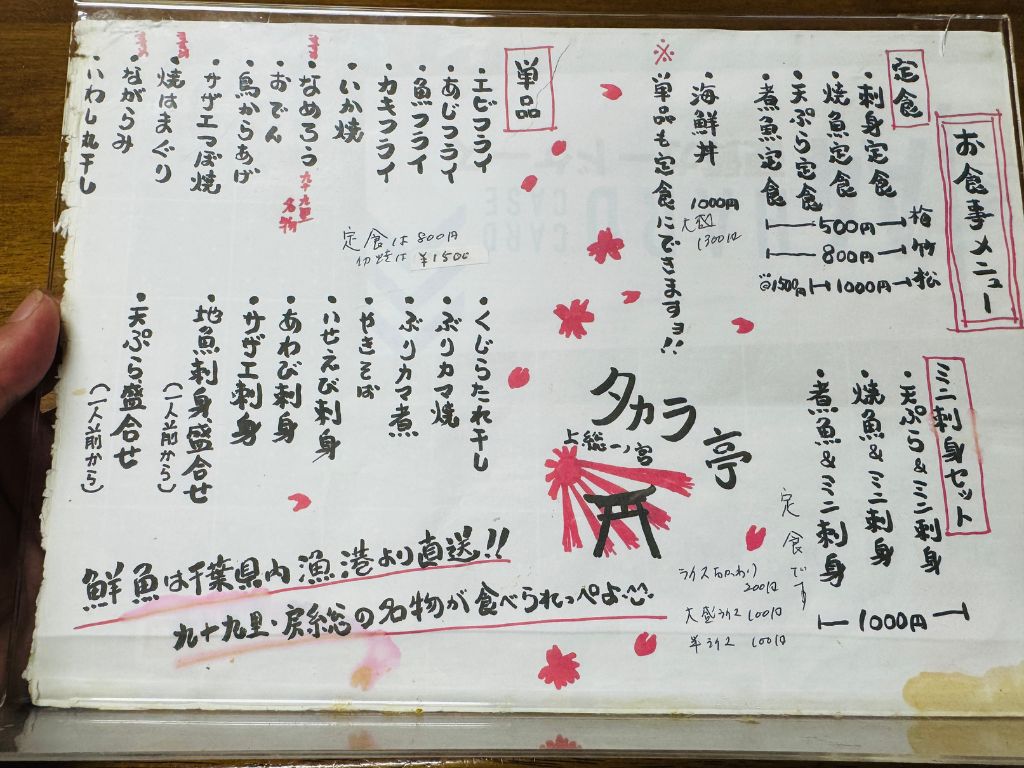 お食事メニュー
定食
・刺身定食
・焼魚定食
・天ぷら定食
・煮魚定食
500円 梅
800円 竹
1000円 松
1500円
・海鮮丼 1000円
1300円
※単品も定食にできますョ!!
ミニ刺身セット
・天ぷら&ミニ刺身
・焼魚&ミニ刺身
・煮魚&ミニ刺身
1000円
定食です
ライスおかわり
200円
大盛ライス 100円
半ライス 100円
単品
・エビフライ
・あじフライ
・魚フライ
・カキフライ
・いか焼
・なめろう 九十九里名物
・おでん
・鳥からあげ
・サザエつぼ焼
・焼はまぐり
・ながらみ
・いわし丸干し
定食は800円
¥1500
・くじらたれ干し
・ぶりカマ焼
・ぶりカマ煮
・やきそば
・いせえび刺身
・あわび刺身
・サザエ刺身
・地魚刺身盛合せ
(一人前から)
・天ぷら盛合せ
(一人前から)
タカラ亭
上総一ノ宮
鮮魚は千葉県内漁港より直送!!
九十九里・房総の名物が食べられっぺよ